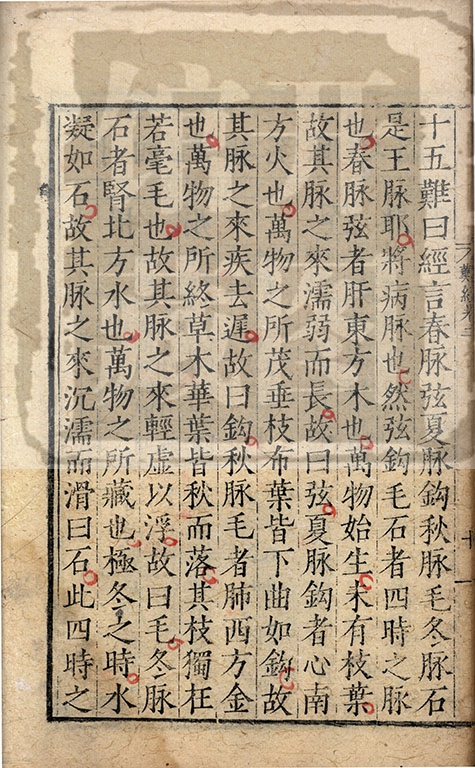 十五難曰經言春脉弦夏脉鈎秋脉毛冬脉石
是王脉耶將病脉也然弦鈎毛石者四時之脉
也春脉弦者肝東方木也萬物始生未有枝葉
故其脉之來濡弱而長故曰弦夏脉鈎者心南
方火也萬物之所茂垂枝布葉皆下曲如鈎故
其脉之來疾去遲故曰鈎秋脉毛者肺西方金
也萬物之所終草木華葉皆秋而落其枝獨在
若毫毛也故其脉之來輕虛以浮故曰毛冬脉
石者腎北方水也萬物之所藏也極冬之時水
凝如石故其脉之來沉濡而滑曰石此四時之